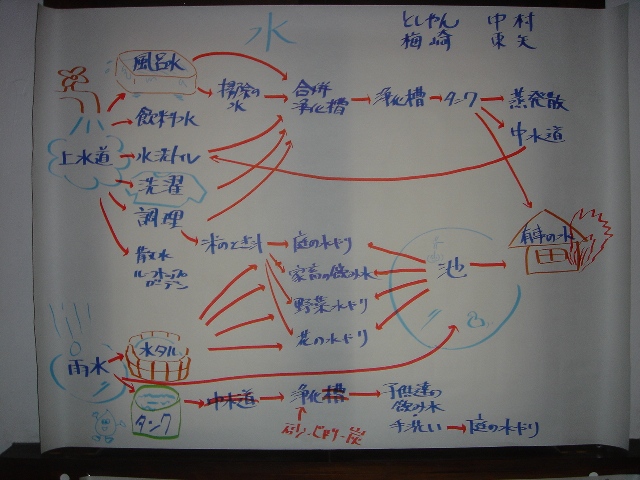 水
としやん 中村
梅崎 東矢
風呂水
掃除の
水
合併
浄化槽
浄化槽
タンク
蒸発散
中水道
飲料水
上水道
水洗トイレ
洗濯
調理
散水
ルーフトップ
ガーデン
米のとぎ汁
庭の水ドリ
家畜の飲み水
野菜水ドリ
花の水ドリ
池
雨水
水タル
タンク
中水道
浄化槽
子供達の
飲み水
手洗い
庭の水ドリ